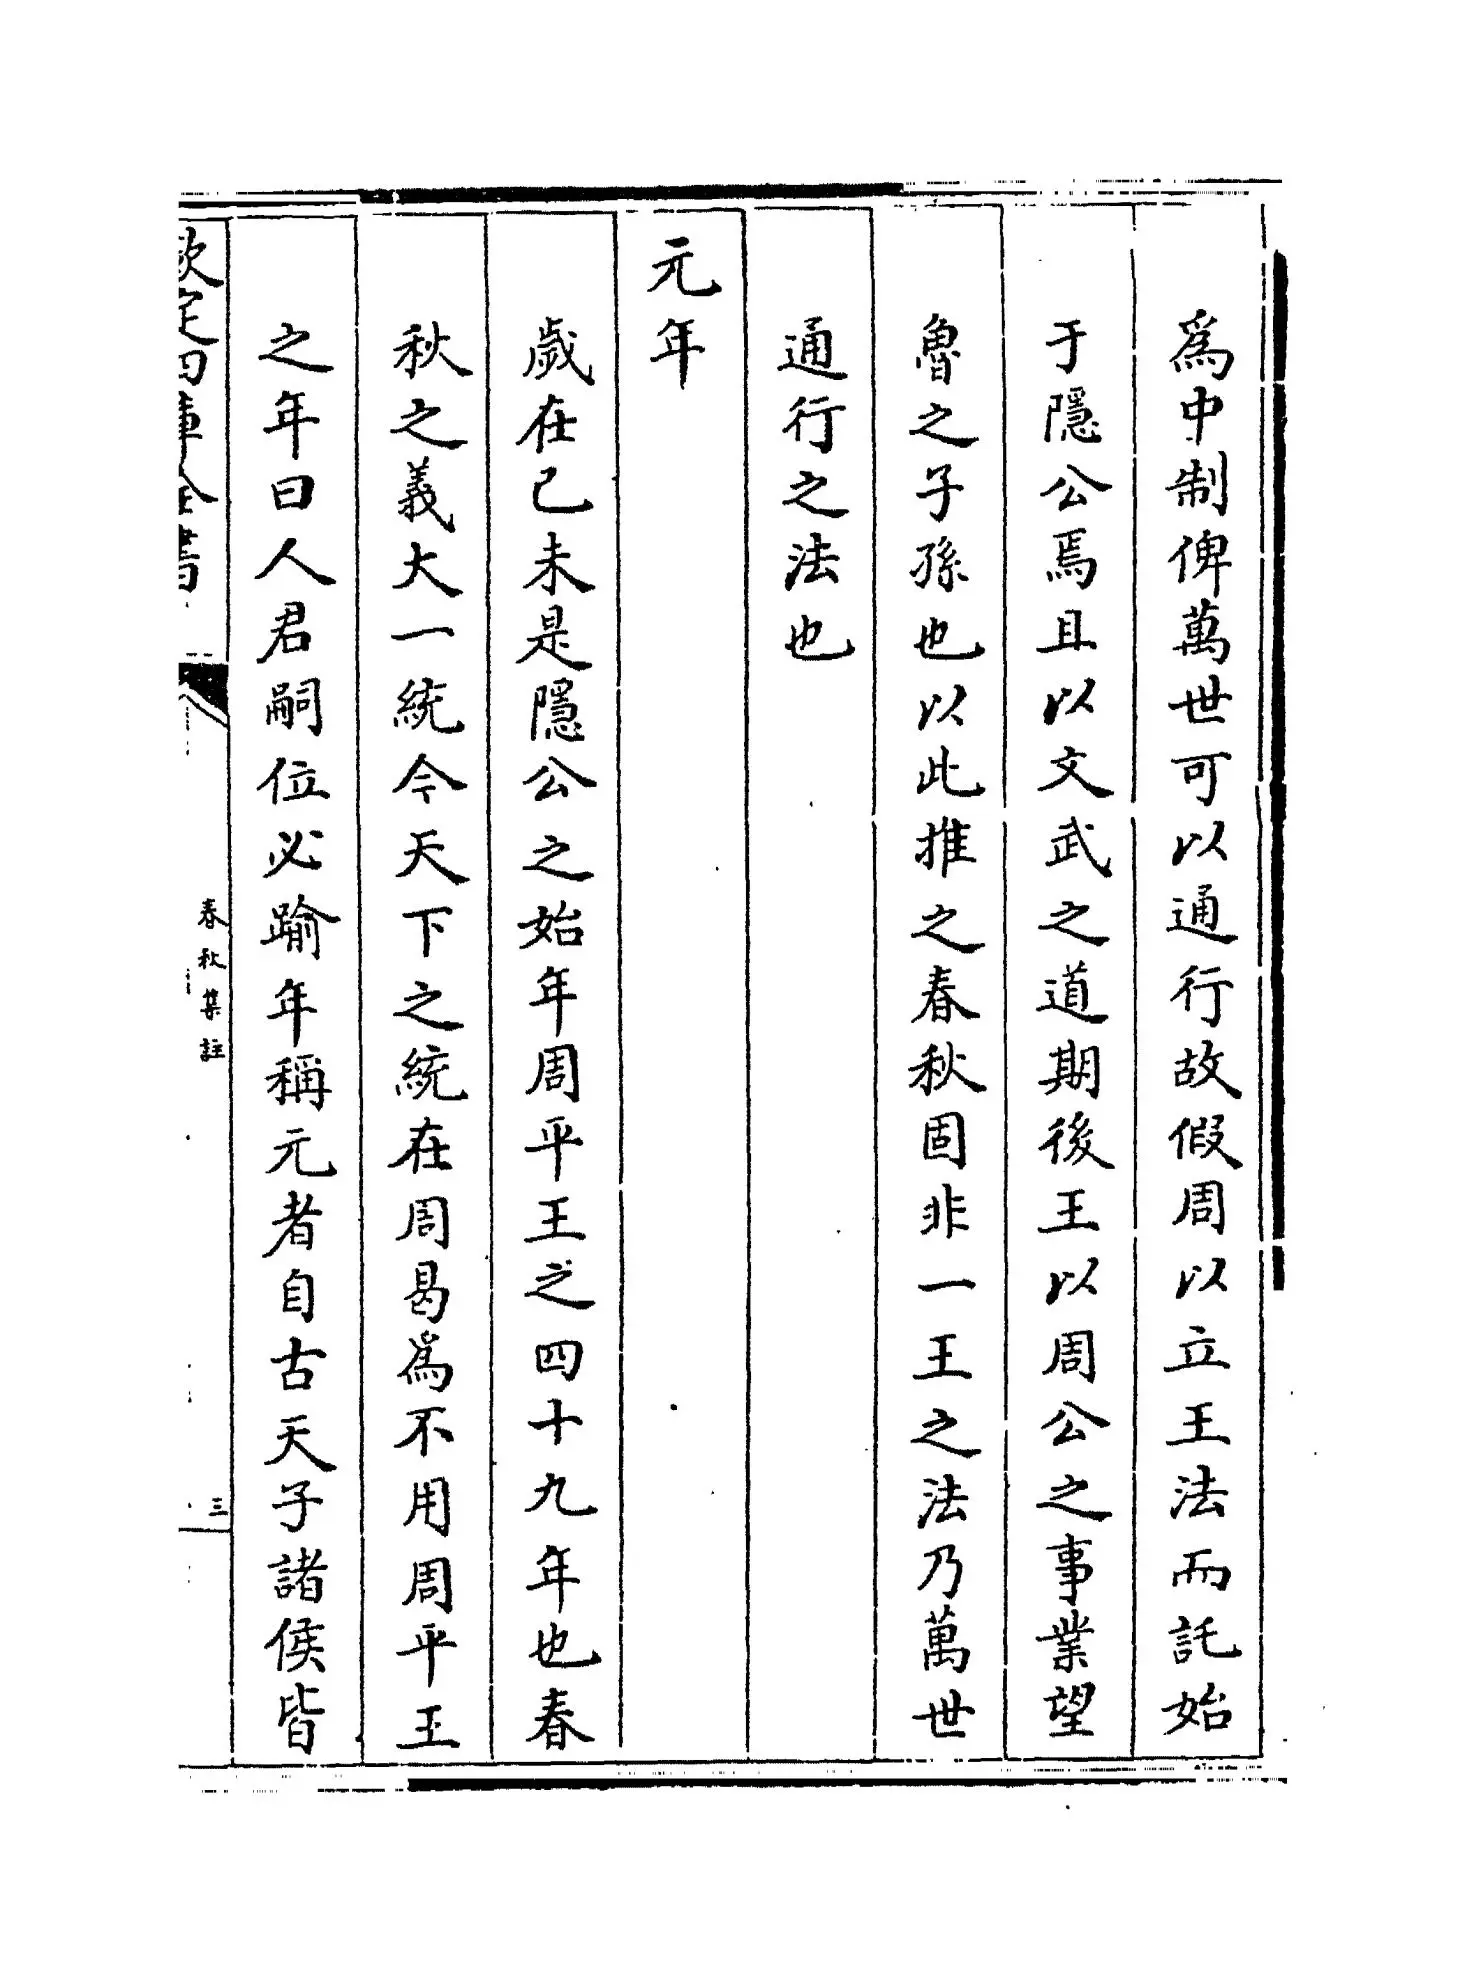 爲中制俾萬世可以通行故假周以立王法而託始
于隱公焉且以文武之道期後王以周公之事業望
魯之子孫也以此推之春秋固非一王之法乃萬世
通行之法也
元年
歲在己未是隱公之始年周平王之四十九年也春
秋之義大一統今天下之統在周曷爲不用周平王
之年曰人君嗣位必踰年稱元者自古天子諸侯皆
欽定四庫全書
春秋集註
三